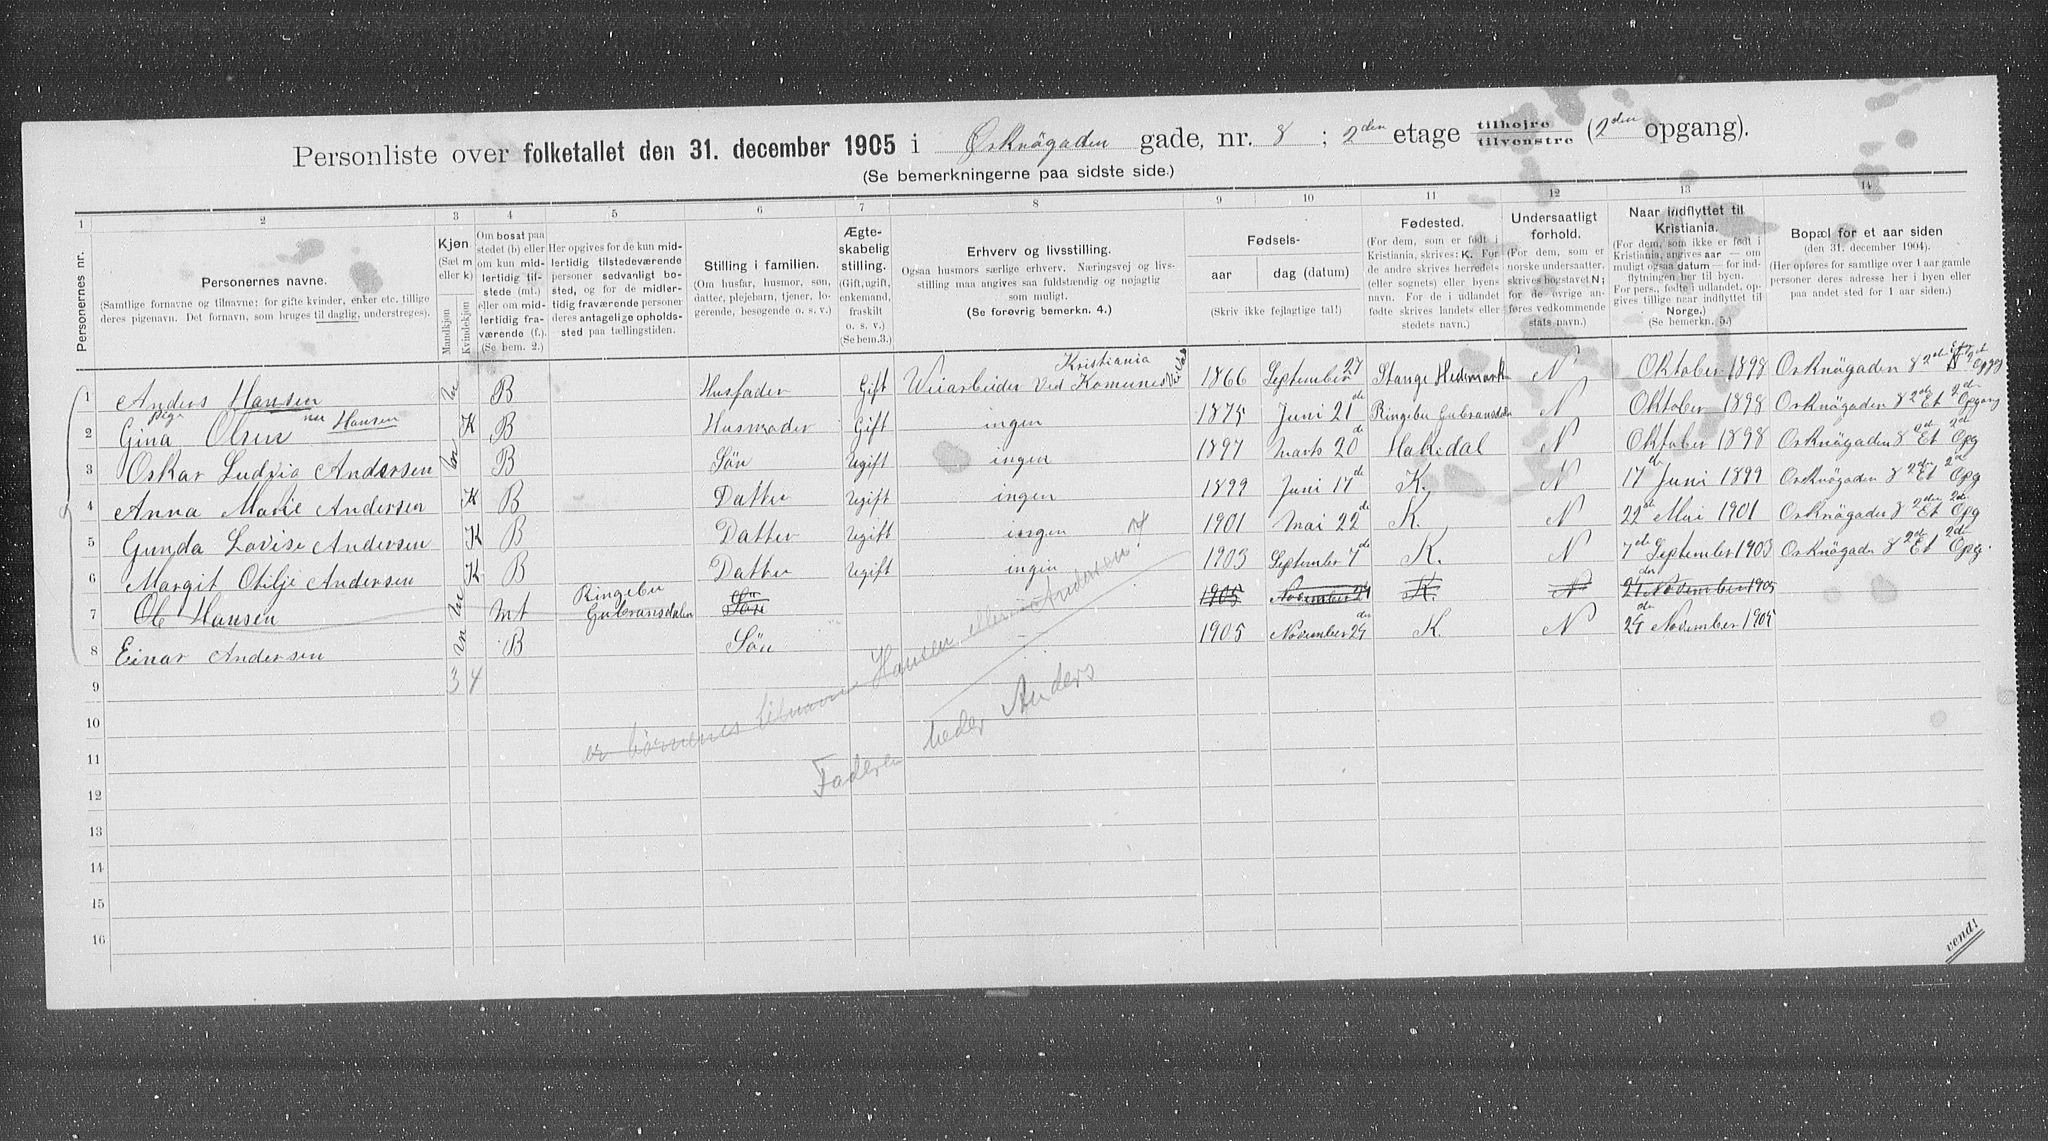 Personliste over folketallet den 31. december 1905 i Orknögaden gade, nr. 8 ; 2den etage tilhøjre tilvenstre (2den opgang).
(Se bemerkningerne paa sidste side.)
1 2 3 4 5 6 7 8 9 10 11 12 13 14
Personernes nr.
Personernes navne.
(Samtlige fornavne og tilnavne; for gifte kvinder, enker etc. tillige deres pigenavn. Det fornavn, som bruges til daglig, understreges).
Kjøn
(Sæt m eller k)
Mandkjøn
Kvindekjøn
Om bosat paa stedet (b) eller om kun midlertidig tilstede (mt.) eller om midlertidig fraværende (f.). (Se bem. 2.)
Her opgives for de kun midlertidig tilstedeværende personer sedvanligt bosted, og for de midlertidig fraværende personer deres antagelige opholdssted paa tællingstiden.
Stilling i familien.
(Om husfar, husmor, søn, datter, plejebarn, tjener, logerende, besøgende o. s. v.)
Ægteskabelig stilling.
(Gift, ugift, enkemand, fraskilt o. s. v.) (Se bem.3.)
Erhverv og livsstilling.
Ogsaa husmors særlige erhverv. Næringsvej og livsstilling maa angives saa fuldstændig og nøjagtig som muligt.
(Se forøvrig bemerkn. 4.)
Fødsels-
aar
dag (datum)
(Skriv ikke fejlagtige tal!)
Fødested.
(For dem, som er født i Kristiania, skrives: K. For de andre skrives herredets (eller sognets) eller byens navn. For de i udlandet fødte skrives landets eller stedets navn.)
Undersaatligt forhold.
(For dem, som er norske undersaatter, skrives bogstavet N; for de øvrige anføres vedkommende stats navn.)
Naar indflyttet til Kristiania.
(For dem, som ikke er født i Kristiania, angives aar — om muligt ogsaa datum — for indflytningen her til byen. For pers., fødte i udlandet, opgives tillige naar indflyttet til Norge.)
(Se bemerkn. 5.)
Bopæl for et aar siden
(den 31. december 1904).
(Her opføres for samtlige over 1 aar gamle personer deres adresse her i byen eller paa andet sted for 1 aar siden.)
1 Anders Hansen m B Husfader Gift Veiarbeider ved Komunes Kristiania 1866 September 27 Stange Hedemark N Oktober 1898 Orknögaden 8 2den Etg 2det Opg
2 Gina Olsen pige nu Hansen K B Husmoder Gift ingen 1875 Juni 21de Ringebu Gubransdalen N Oktober 1898 Orknögaden 8 2det Et 2det Opgang
3 Oskar Ludvig Andersen m B Sön Ugift ingen 1897 Marts 20de Hakedal N Oktober 1898 Orknögaden 8 2det Et 2det Opg
4 Anna Marie Andersen K B Datter Ugift ingen 1899 Juni 17de K. N 17de Juni 1899 Orknögaden 8 2det Et 2det Opg
5 Gunda Lovise Andersen K B Datter Ugift ingen 1901 Mai 22de K. N 22de Mai 1901 Orknögaden 8 2den Et 2det Opg
6 Margit Otilje Andersen K B Datter Ugift ingen 1903 September 7de K. N 7de September 1903 Orknögaden 8 2det Et 2det Opg.
7 Ole Hansen m mt Ringebu Gubransdalen Sön 1905 November 24 K N 24den November 1905
8 Einar Andersen m B Sön 1905 November 24den K. N 24de November 1905
9 3 4
10
11
12
13
14
15
16
er børnenes tilnavn Hansen eller Andersen ?
Faderen heder Anders
vend!